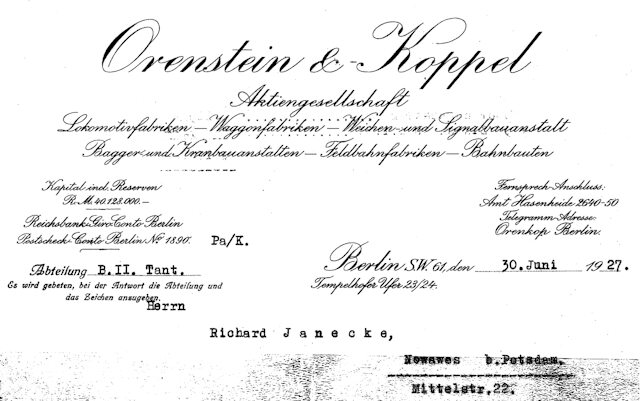 Orenstein & Koppel
Aktiengesellschaft
Lokomotivfabriken – Waggonfabriken – Weichen- und Signalbauanstalt
Bagger- und Kranbauanstalten – Feldbahnfabriken – Bahnbauten
Kapital incl. Reserven
R.M. 40.123.000.—
Reichsbank-Giro-Conto Berlin
Postscheck-Conto Berlin No 1890.
Pa/K.
Fernsprech-Anschluss:
Amt Hasenheide 2640-50
Telegramm-Adresse:
Orenkop Berlin.
Abteilung B.II. Tant.
Es wird gebeten, bei der Antwort die Abteilung und
das Zeichen anzugeben.
Berlin S.W. 61, den 30. Juni 1927.
Tempelhofer Ufer 23/24.
Herrn
Richard Janecke,
Nowawes b.Potsdam.
Mittelstr.22.